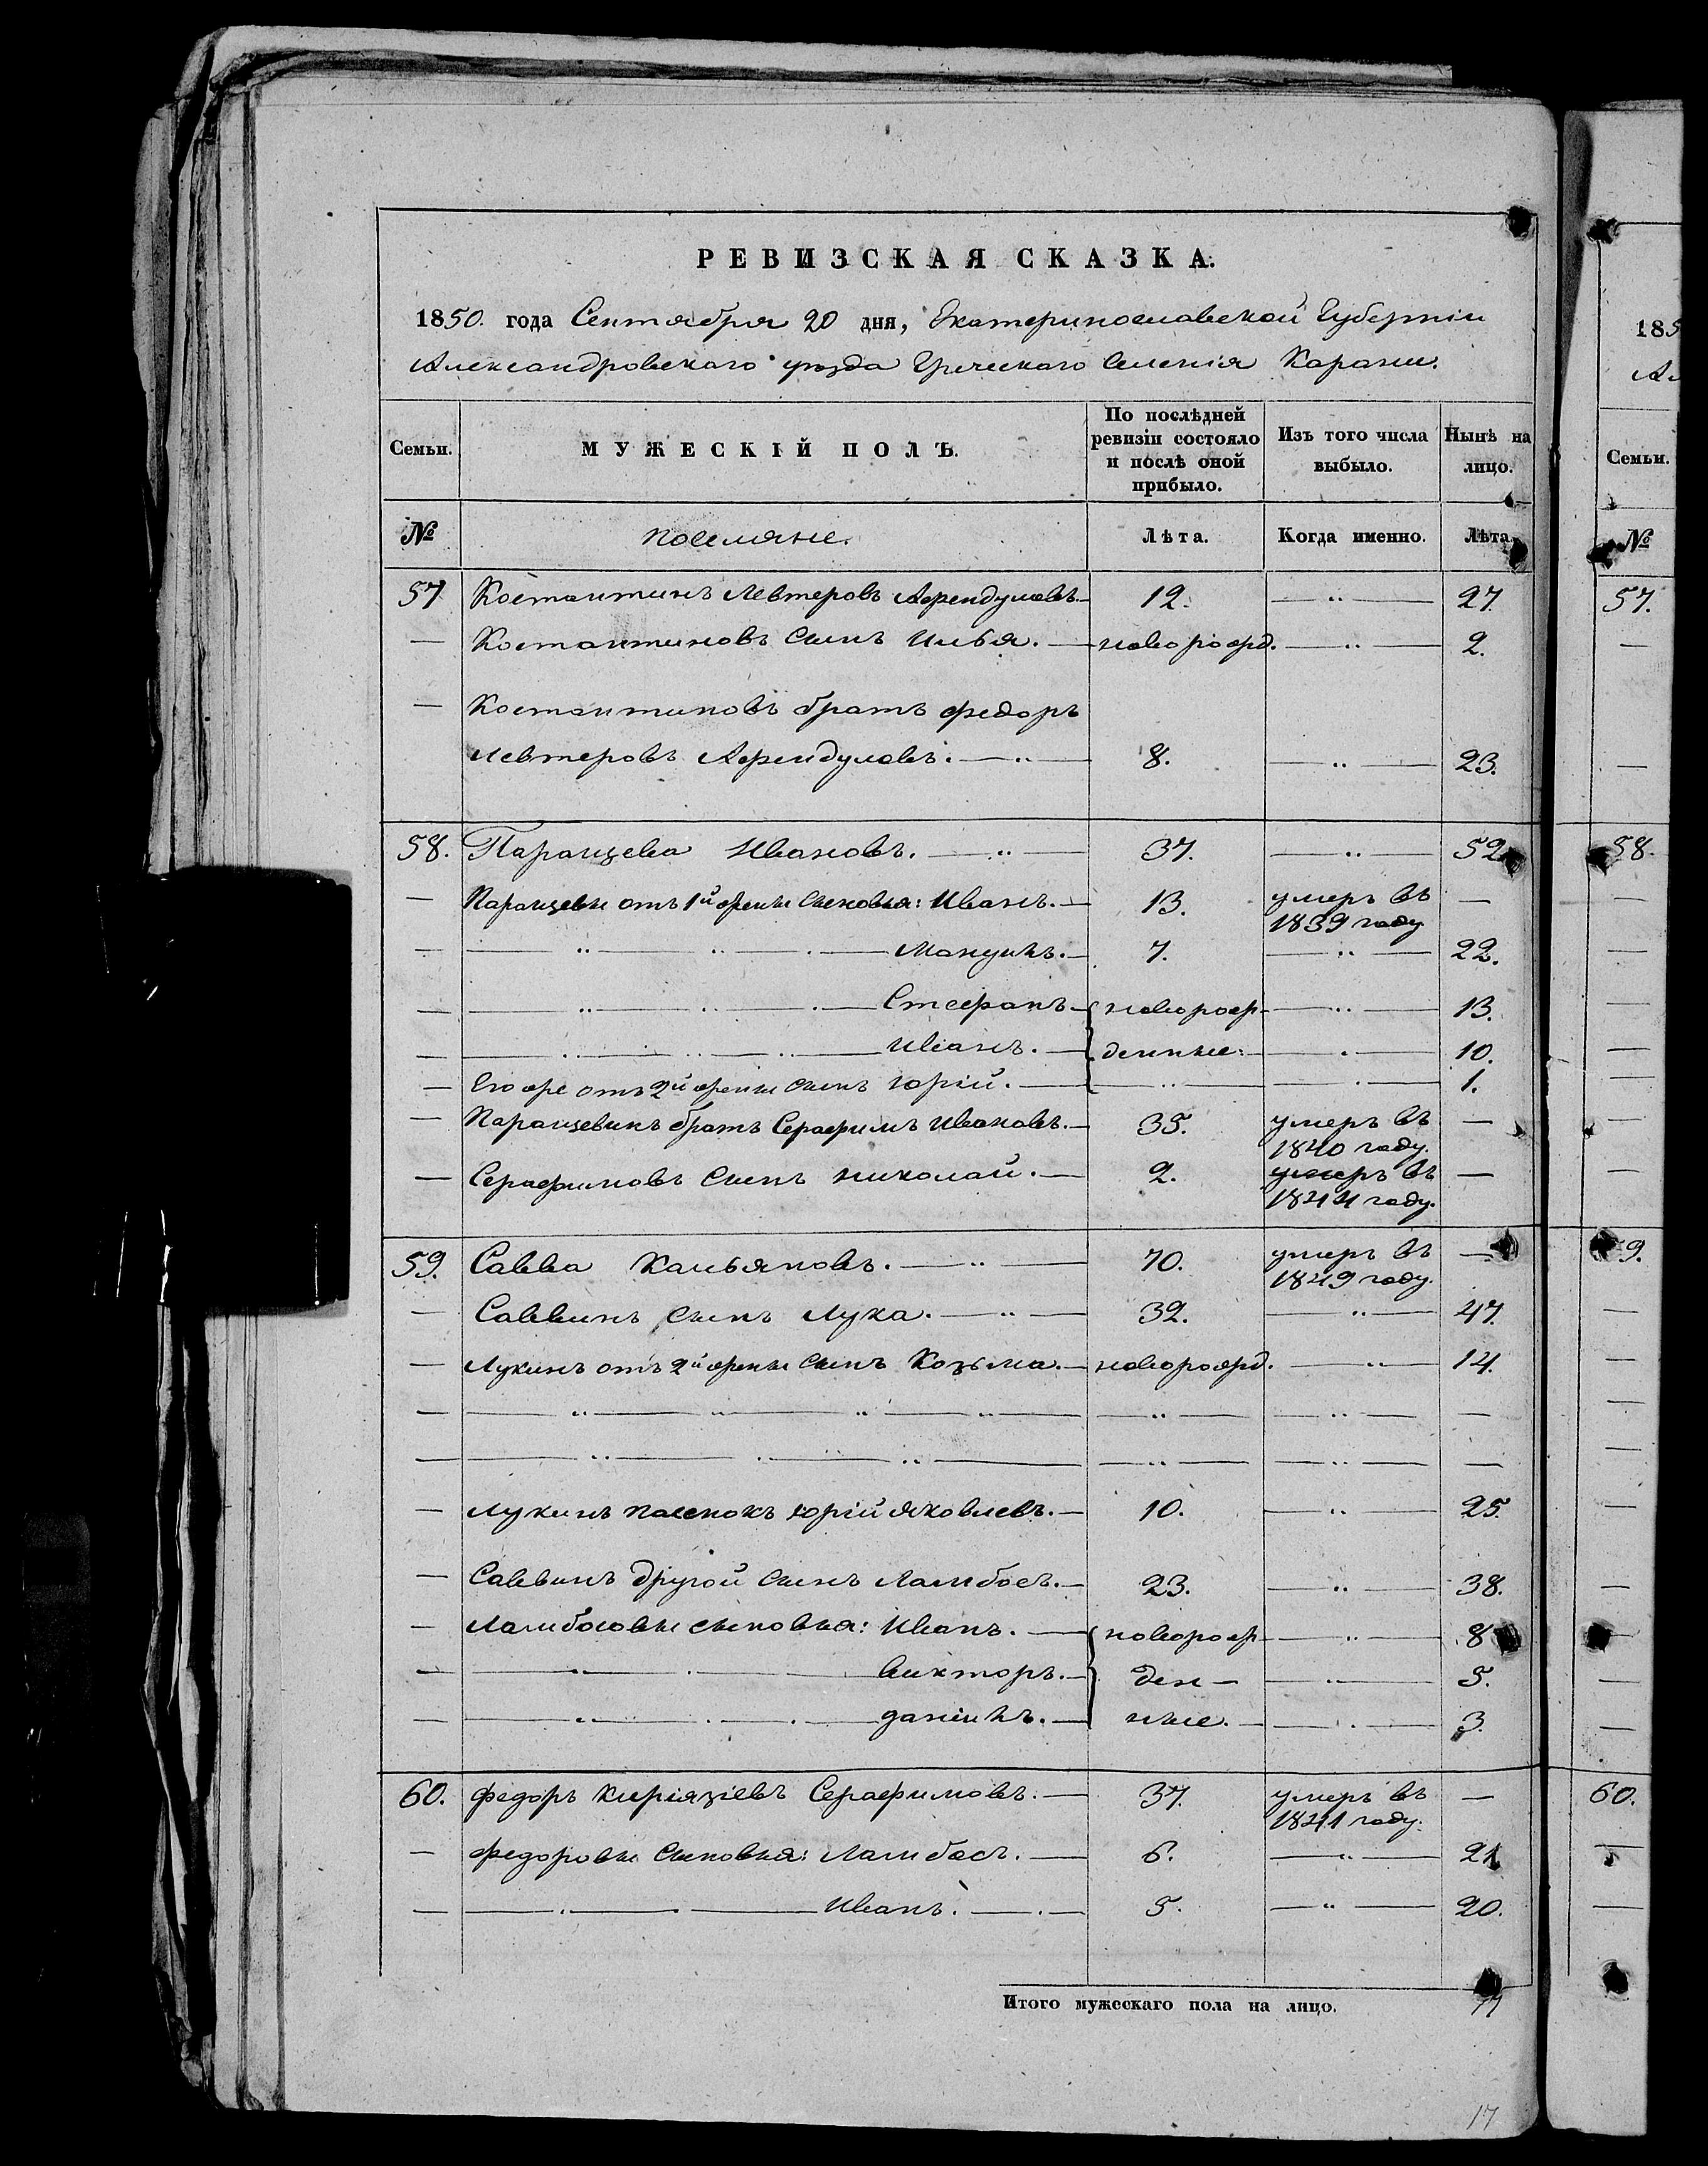 РЕВИЗСКАЯ СКАЗКА.
1850. года Сентября 20 дня, Екатеринославской Губерніи
Александровскаго уѣзда Греческаго Селенія Карани.
Семьи. МУЖЕСКІЙ ПОЛЪ. По послѣдней ревизіи состояло и послѣ оной прибыло. Изъ того числа выбыло. Нынѣ на лицо.
№ поселяне. Лѣта. Когда именно. Лѣта.
57 Костантинъ Левтеровъ Афендуловъ.— 12. — " — 27.
— Костантиновъ сынъ Илья. — новорожд. — " — 2.
— Костантиновъ братъ Федоръ
Левтеровъ Афендуловъ. — " — 8. — " — 23.
58. Паранцева Ивановъ. — " — 37. — " — 52.
— Паранцевы отъ 1й жены сыновья: Иванъ. — 13. умеръ въ 1839 году —
— — " — " — Мануилъ. — 7. — " — 22.
— — " — " — Стефанъ — новорож- — " — 13.
— — " — " — Иванъ. — денные: — " — 10.
— Его же отъ 2й жены сынъ Юрій. — " — 1.
— Паранцевинъ братъ Серафимъ Ивановъ. — 35. умеръ въ 1840 году. —
— Серафимовъ сынъ Николай. — 2. умеръ въ 1844 году. —
59. Савва Кальяновъ. — " — 70. умеръ въ 1849 году. —
— Саввинъ сынъ Лука. — " — 32. — " — 47.
— Лукинъ отъ 2й жены сынъ Козьма. — новорожд. — " — 14.
— — " — " — " — " — — " — — " — —
— — " — " — " — — " — — " — —
— Лукинъ пасенокъ Юрій Яковлевъ. — 10. — " — 25.
— Саввинъ другой сынъ Ламбосъ. — 23. — " — 38.
— Ламбосовы сыновья: Иванъ. — новорож- — " — 8.
— — " — Викторъ. — ден- — " — 5.
— — " — Даніилъ. — ные. — " — 3.
60. Федоръ Киріязіевъ Серафимовъ. — 37. умеръ въ 1841 году. —
— Федоровы сыновья: Ламбосъ. — 6. — " — 21
— — " — Иванъ. — " — 5. — " — 20.
Итого мужескаго пола на лицо. 17
17
185
Семьи.
№
57.
58.
9.
60.